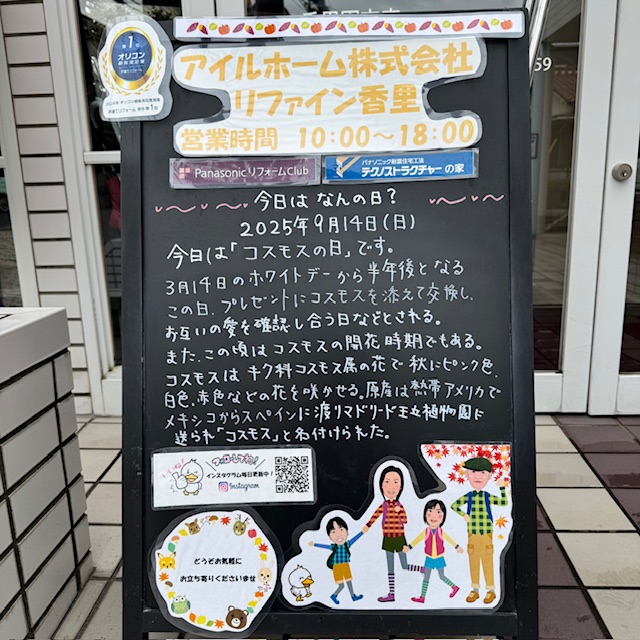 第1位
オリコン
顧客満足度®
アイルホーム株式会社
リファイン香里
営業時間 10:00～18:00
59
Panasonic リフォームClub
パナソニック耐震住宅工法
テクノストラクチャーの家
今日はなんの日？
2025年9月14日(日)
今日は「コスモスの日」です。
3月14日のホワイトデーから半年後となる
この日、プレゼントにコスモスを添えて交換し、
お互いの愛を確認し合う日などとされる。
また、この頃はコスモスの開花時期でもある。
コスモスはキク科コスモス属の花で秋にピンク色、
白色、赤色などの花を咲かせる。原産は熱帯アメリカで
メキシコからスペインに渡りマドリード王立植物園に
送られ「コスモス」と名付けられた。
フォローしてね!
インスタグラム毎日更新中!
Instagram
どうぞお気軽に
お立ち寄りくださいませ